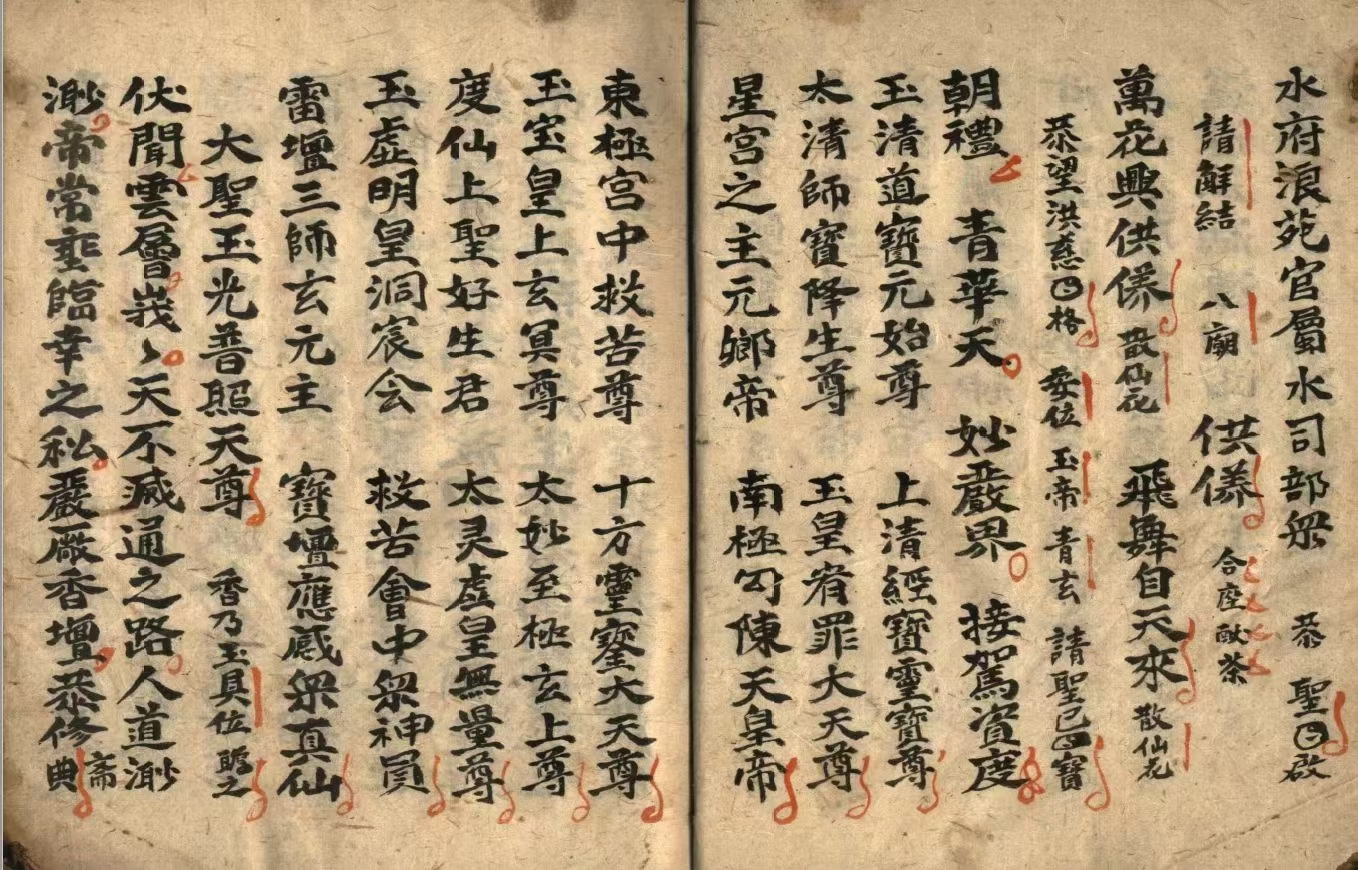 水府浪苑官屬水司部眾 恭 聖 啟
請解結 八廟 供養 合座献茶
萬花興供養 散仙花 飛舞自天來 散仙花
恭望洪慈 格 委位 玉帝 青玄 請聖已 寶
朝禮 青華天 妙嚴界 接駕資度
玉清道寶元始尊 上清經寶靈寶尊
太清師寶降生尊 玉皇宥罪大天尊
星宮之主元鄉帝 南極勾陳天皇帝
東極宮中救苦尊 十方靈寶大天尊
玉宝皇上玄冥尊 太妙至極玄上尊
度仙上聖好生君 太灵虛皇無量尊
玉虛明皇洞宸会 救苦會中眾神員
雷壇三師玄元主 寶壇應感眾真仙
大聖玉光普照天尊 香乃玉具位 瞻之
伏聞雲層峩〻天不滅通之路人道渺
渺帝常垂臨幸之私嚴厰香壇恭修斋典